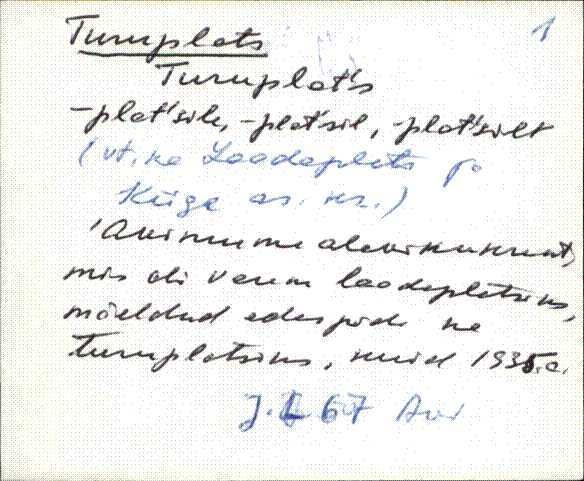 1
Turuplats
Turuplat's
-plat'sile, -plat'sil, -plat'silt
(vt. ka Laadaplats ja
Küge as. ks.)
'Avinurme alevikukrunt,
mis oli varem laadaplatsiks,
mõeldud edaspidi ka
turuplatsiks, kuid 1935.a.
J. L 67 Avi